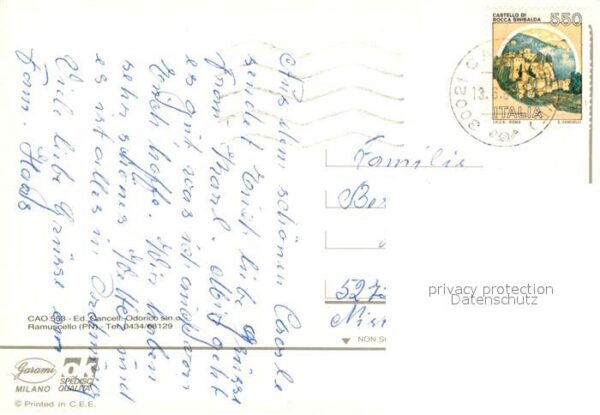 Aus dem schönen Caorle
sendet Euch liebe Grüsse
Frau Mharl. Mir geht
es gut was ich auch von
Euch hoffe. Wir haben
sehr schönes Wetter und
es ist alles in Ordnung
Viele liebe Grüsse von
Fam. Haas
CASTELLO DI
ROCCA SINIBALDA
550
ITALIA
30021 C
13.6.
Familie
Be
527
privacy protection
Datenschutz
CAO 593 - Ed. Cancell. Odorico s.n.c.
Ramuscello (PN) - Tel. 0434/69129
NON S
Garami
MILANO
ok
SPEDISCI
QUALITÀ
© Printed in C.E.E.